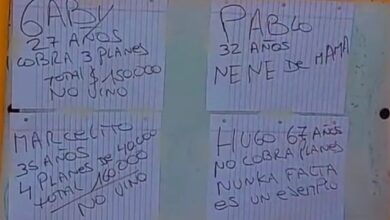 GABY
27 AÑOS
COBRA 3 PLANES
TOTAL $ 150.000
NO VINO
PABLO
32 AÑOS
NENE DE MAMA
MARCELITO
35 AÑOS
4 PLANES DE 40.000
TOTAL 160.000
NO VINO
HUGO 67 AÑOS
NO COBRA PLANES
NUNKA FALTA
ES UN EJEMPLO